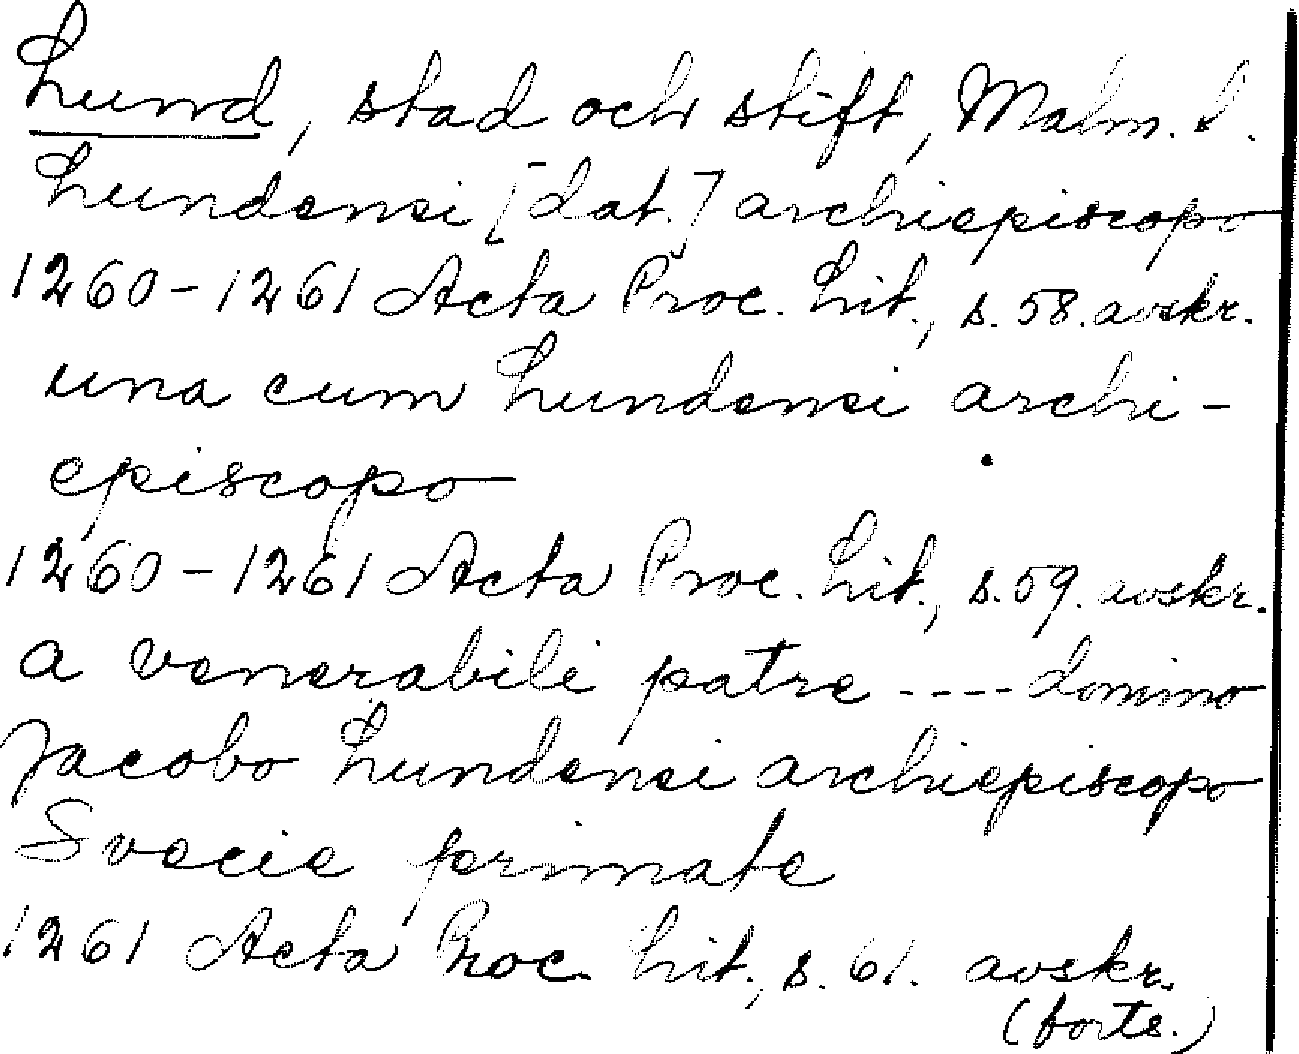 Lund, stad och stift, Malm. l.
Lundensi [dat.] archiepiscopo
1260-1261 Acta Proc. Lit., s. 58. avskr.
una cum Lundensi archi-
episcopo
1260-1261 Acta Proc. Lit., s. 59. avskr.
a venerabili patre ---- domino
Jacobo Lundensi archiepiscopo
Svecie primate
1261 Acta Proc. Lit., s. 61. avskr.
(forts.)